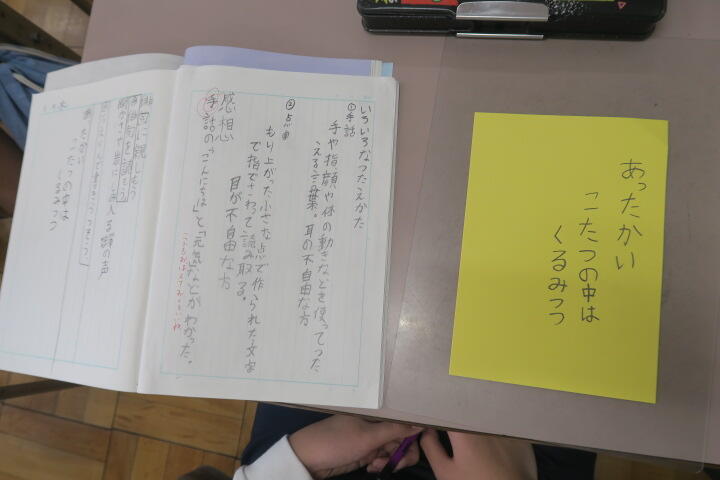 あったかい
こたつの中は
くるみつつ
いろいろなつたえかた
①手話
手や指顔や体の動きなどを使ってつた
える言葉。耳の不自由な方
②点字
もり上がった小さな点で作られた文字
で指でさわって読み取る。
目が不自由な方
感想
手話の「こんにちは」と「元気」などがわかった。
俳句に親しもう
俳句を読もう
あったかい
こたつの中は
くるみつつ